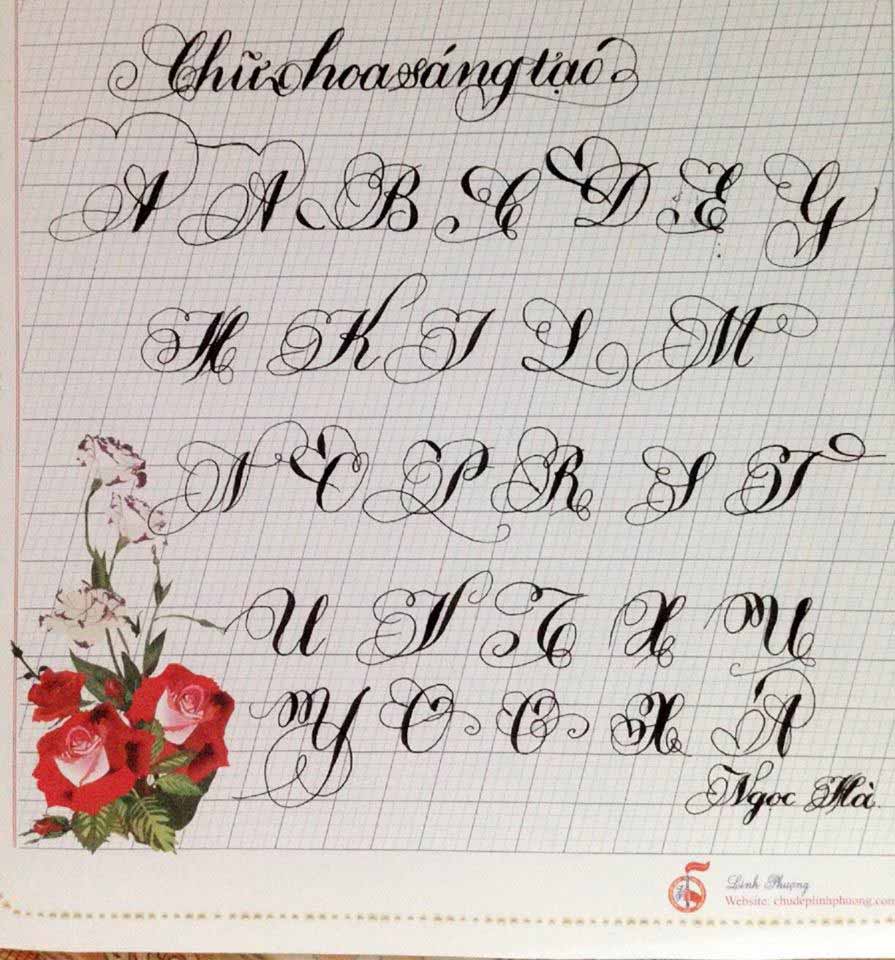 Chữ hoa sáng tạo
A A B C D E G
H K I L M
N O P R S T
U V T X U
Y O O X A
Ngọc Hà
Linh Phượng
Website: chudeplinhphuong.com